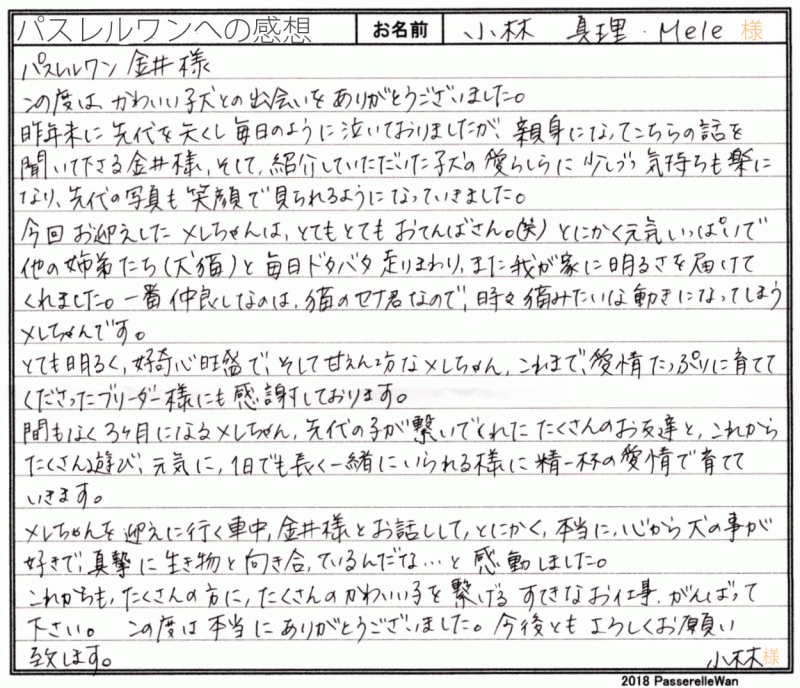 パスレルワンへの感想 お名前 小林 真理・Mele 様
パスレルワン 金井様
この度は、かわいい子犬との出会いをありがとうございました。
昨年末に先代を亡くし毎日のように泣いておりましたが、親身になってこちらの話を
聞いて下さる金井様、そして、紹介していただいた子犬の愛らしさに少しづつ気持ちも楽に
なり、先代の写真も笑顔で見られるようになっていきました。
今回お迎えしたメレちゃんは、とてもとてもおてんばさん。(笑)とにかく元気いっぱいで
他の姉弟たち(犬猫)と毎日ドタバタ走りまわり、また我が家に明るさを届けて
くれました。一番仲良しなのは、猫のセナ君なので、時々猫みたいな動きになってしまう
メレちゃんです。
とても明るく、好奇心旺盛で、そして甘えん坊なメレちゃん、これまで、愛情たっぷりに育てて
くださったブリーダー様にも感謝しております。
間もなく3ヶ月になるメレちゃん、先代の子が繋いでくれたたくさんのお友達と、これから
たくさん遊び、元気に、1日でも長く一緒にいられる様に精一杯の愛情で育てて
いきます。
メレちゃんを迎えに行く車中、金井様とお話しして、とにかく、本当に、心から犬の事が
好きで、真摯に生き物と向き合っているんだな…と感動しました。
これからも、たくさんの方に、たくさんのかわいい子を繋げるすてきなお仕事、がんばって
下さい。 この度は本当にありがとうございました。今後ともよろしくお願い
致します。 小林様
2018 PasserelleWan